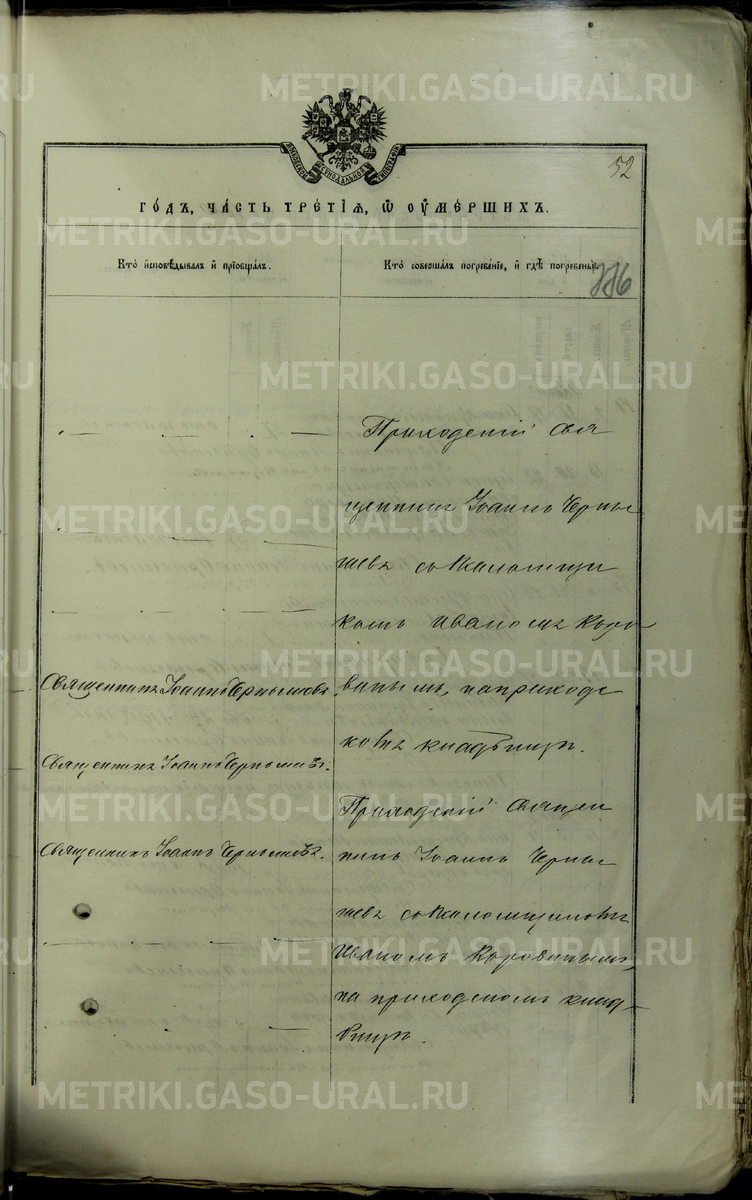 52
ГОДЪ, ЧАСТЬ ТРЕТІЯ, Ѡ ОУМЕРШИХЪ.
Кто исповѣдывалъ и пріобщалъ.
Кто совершалъ погребеніе, и гдѣ погребены.
Приходскій Свя
щенникъ Іоаннъ Черны
шевъ съ псаломщи
комъ Иваномъ Коро
винымъ, на приходс
комъ кладбищѣ.
Священникъ Іоаннъ Чернышевъ.
Священникъ Іоаннъ Чернышевъ.
Священникъ Іоаннъ Чернышевъ.
Приходскій Священ
никъ Іоаннъ Черны
шевъ съ псаломщикомъ
Иваномъ Коровинымъ,
на приходскомъ клад-
бищѣ.
METRIKI.GASO-URAL.RU